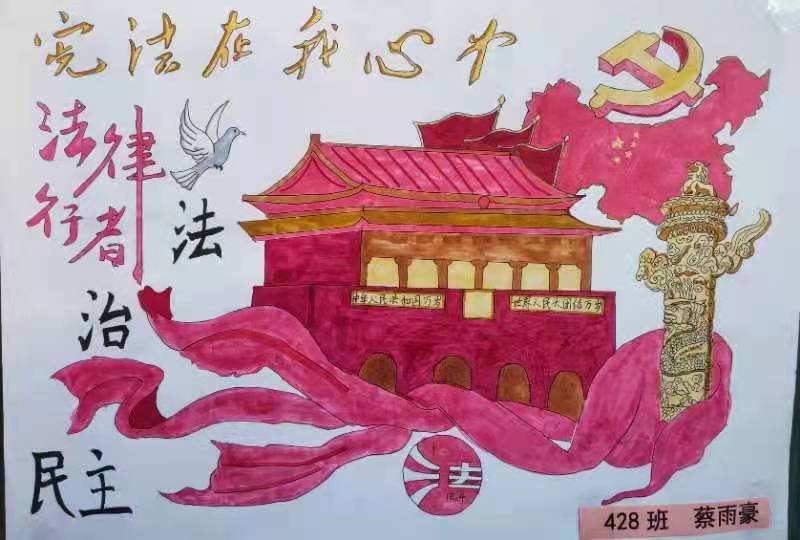 宪法在我心中
法律
行者
法
治
民主
中华人民共和国万岁
世界人民大团结万岁
法
428班 蔡雨豪